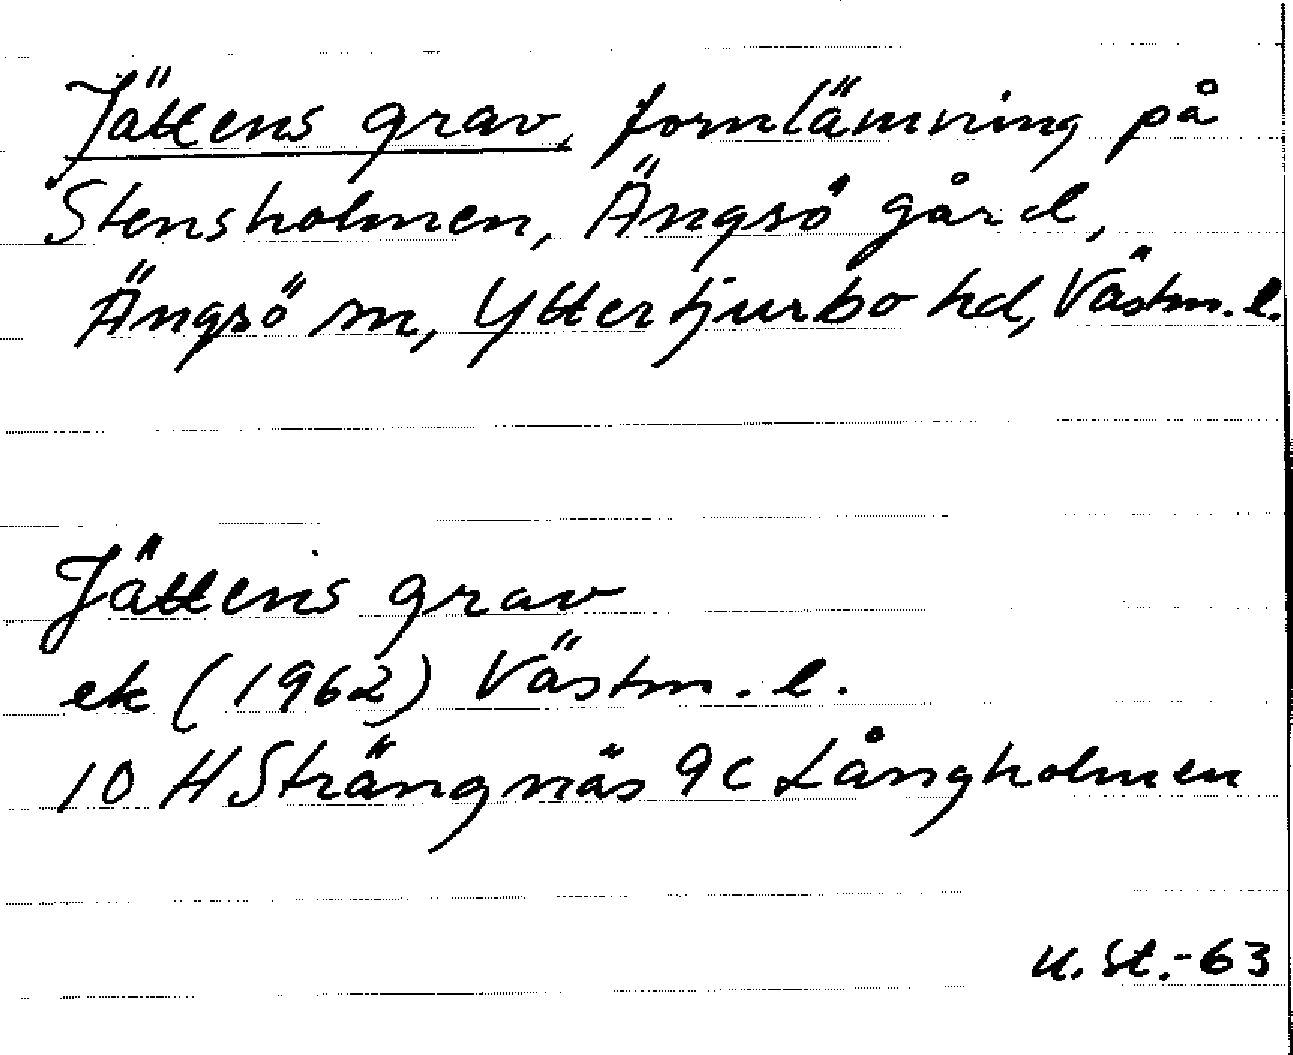 Jättens grav, fornlämning på
Stensholmen, Ängsö gård,
Ängsö sn, Yttertjurbo hd, Västm. l.
Jättens grav
ek (1962) Västm. l.
10 H Strängnäs 9c Långholmen
U. St.-63